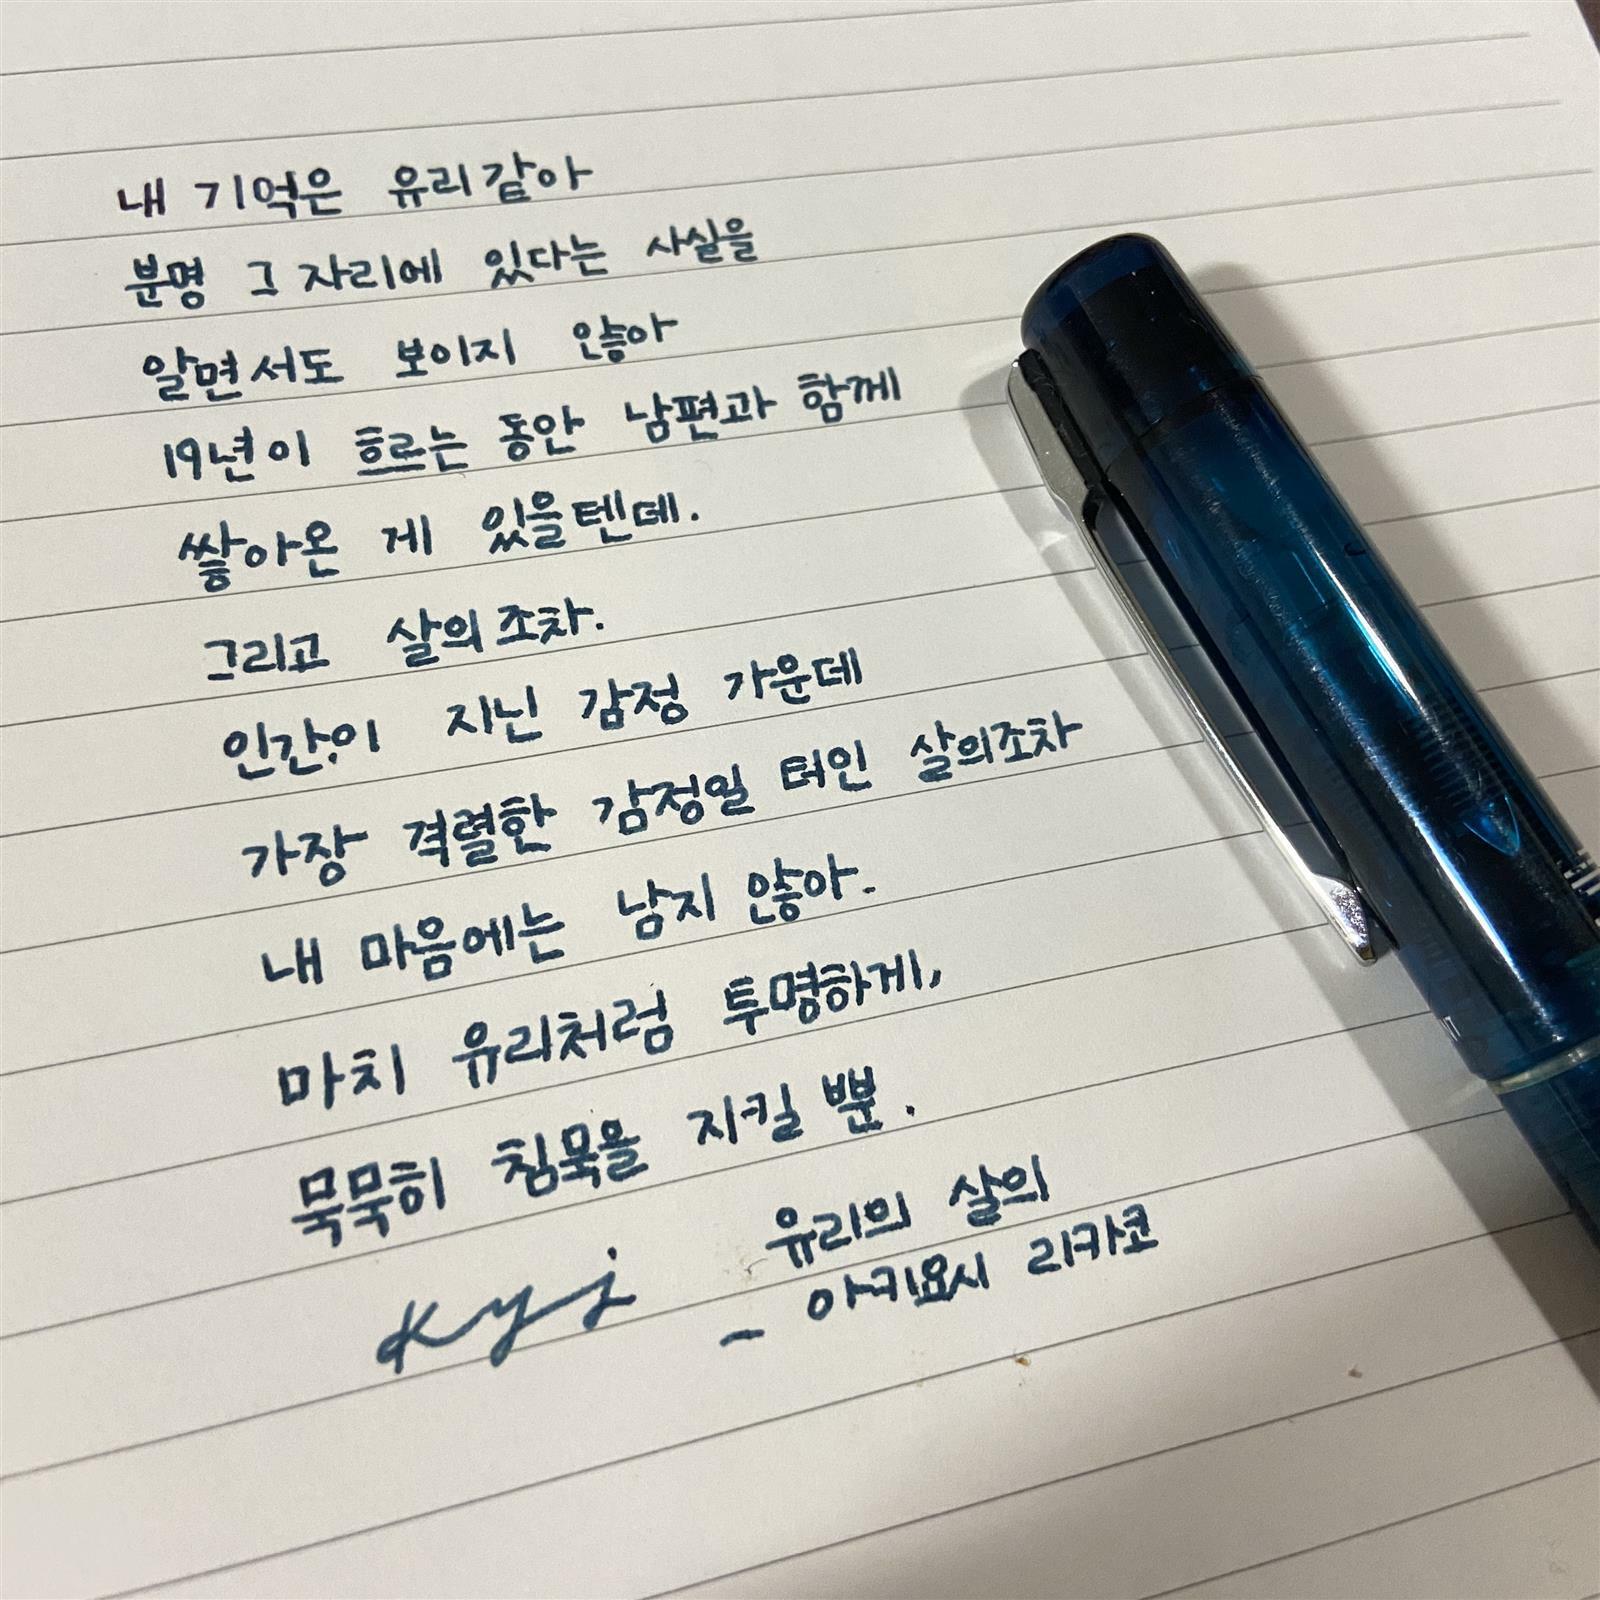 내 기억은 유리같아
분명 그 자리에 있다는 사실을
알면서도 보이지 않아
19년이 흐르는 동안 남편과 함께
쌓아온 게 있을텐데.
그리고 살의조차.
인간이 지닌 감정 가운데
가장 격렬한 감정일 터인 살의조차
내 마음에는 남지 않아.
마치 유리처럼 투명하게,
묵묵히 침묵을 지킬 뿐.
유리의 살의
- 아키요시 리카코
Kyj